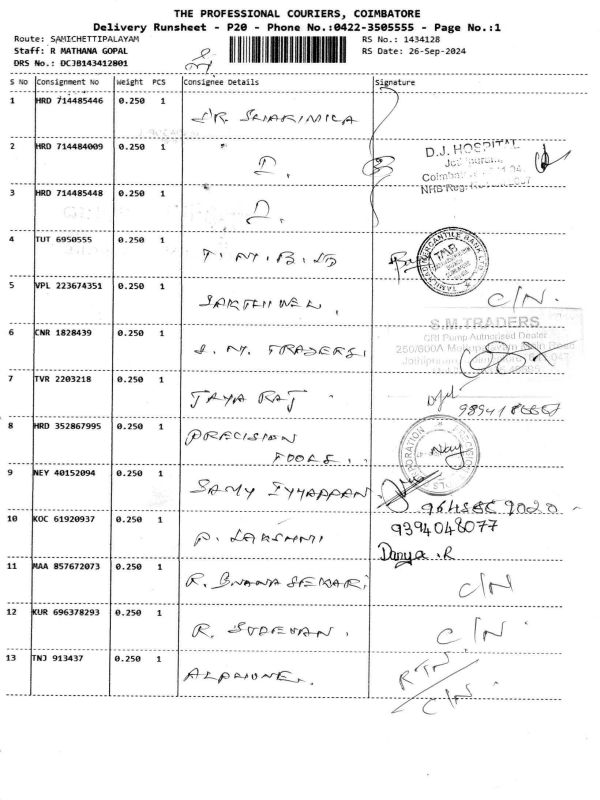 THE PROFESSIONAL COURIERS, COIMBATORE
Delivery Runsheet - P20 - Phone No.:0422-3505555 - Page No.:1
Route: SAMICHETTIPALAYAM RS No.: 1434128
Staff: R MATHANA GOPAL RS Date: 26-Sep-2024
DRS No.: DCJB143412801
S No Consignment No Weight PCS Consignee Details Signature
1 HRD 714485446 0.250 1 DR. SHARIMILA
2 HRD 714484009 0.250 1 D.
D.J. HOSPITAL
3 HRD 714485448 0.250 1 D.
4 TUT 6950555 0.250 1 T. M. B. LTD
TAMILNAD MERCANTILE BANK LTD
TMB
5 VPL 223674351 0.250 1 SAKTHIVEL. C/N.
S.M.TRADERS
CRI Pump Authorised Dealer
6 CNR 1828439 0.250 1 S. M. TRADERS.
7 TVR 2203218 0.250 1 JAYA RAJ
8 HRD 352867995 0.250 1 PRECISION
TOOLS.
9 NEY 40152094 0.250 1 SAMY IYYAPPAN
10 KOC 61920937 0.250 1 P. LAKSHMI 9394048077
Danya .R
11 MAA 857672073 0.250 1 R. GNANA SEKARI C/N
12 KUR 696378293 0.250 1 R. SUDEVAN. C/N.
13 TNJ 913437 0.250 1 RTN
C/N.